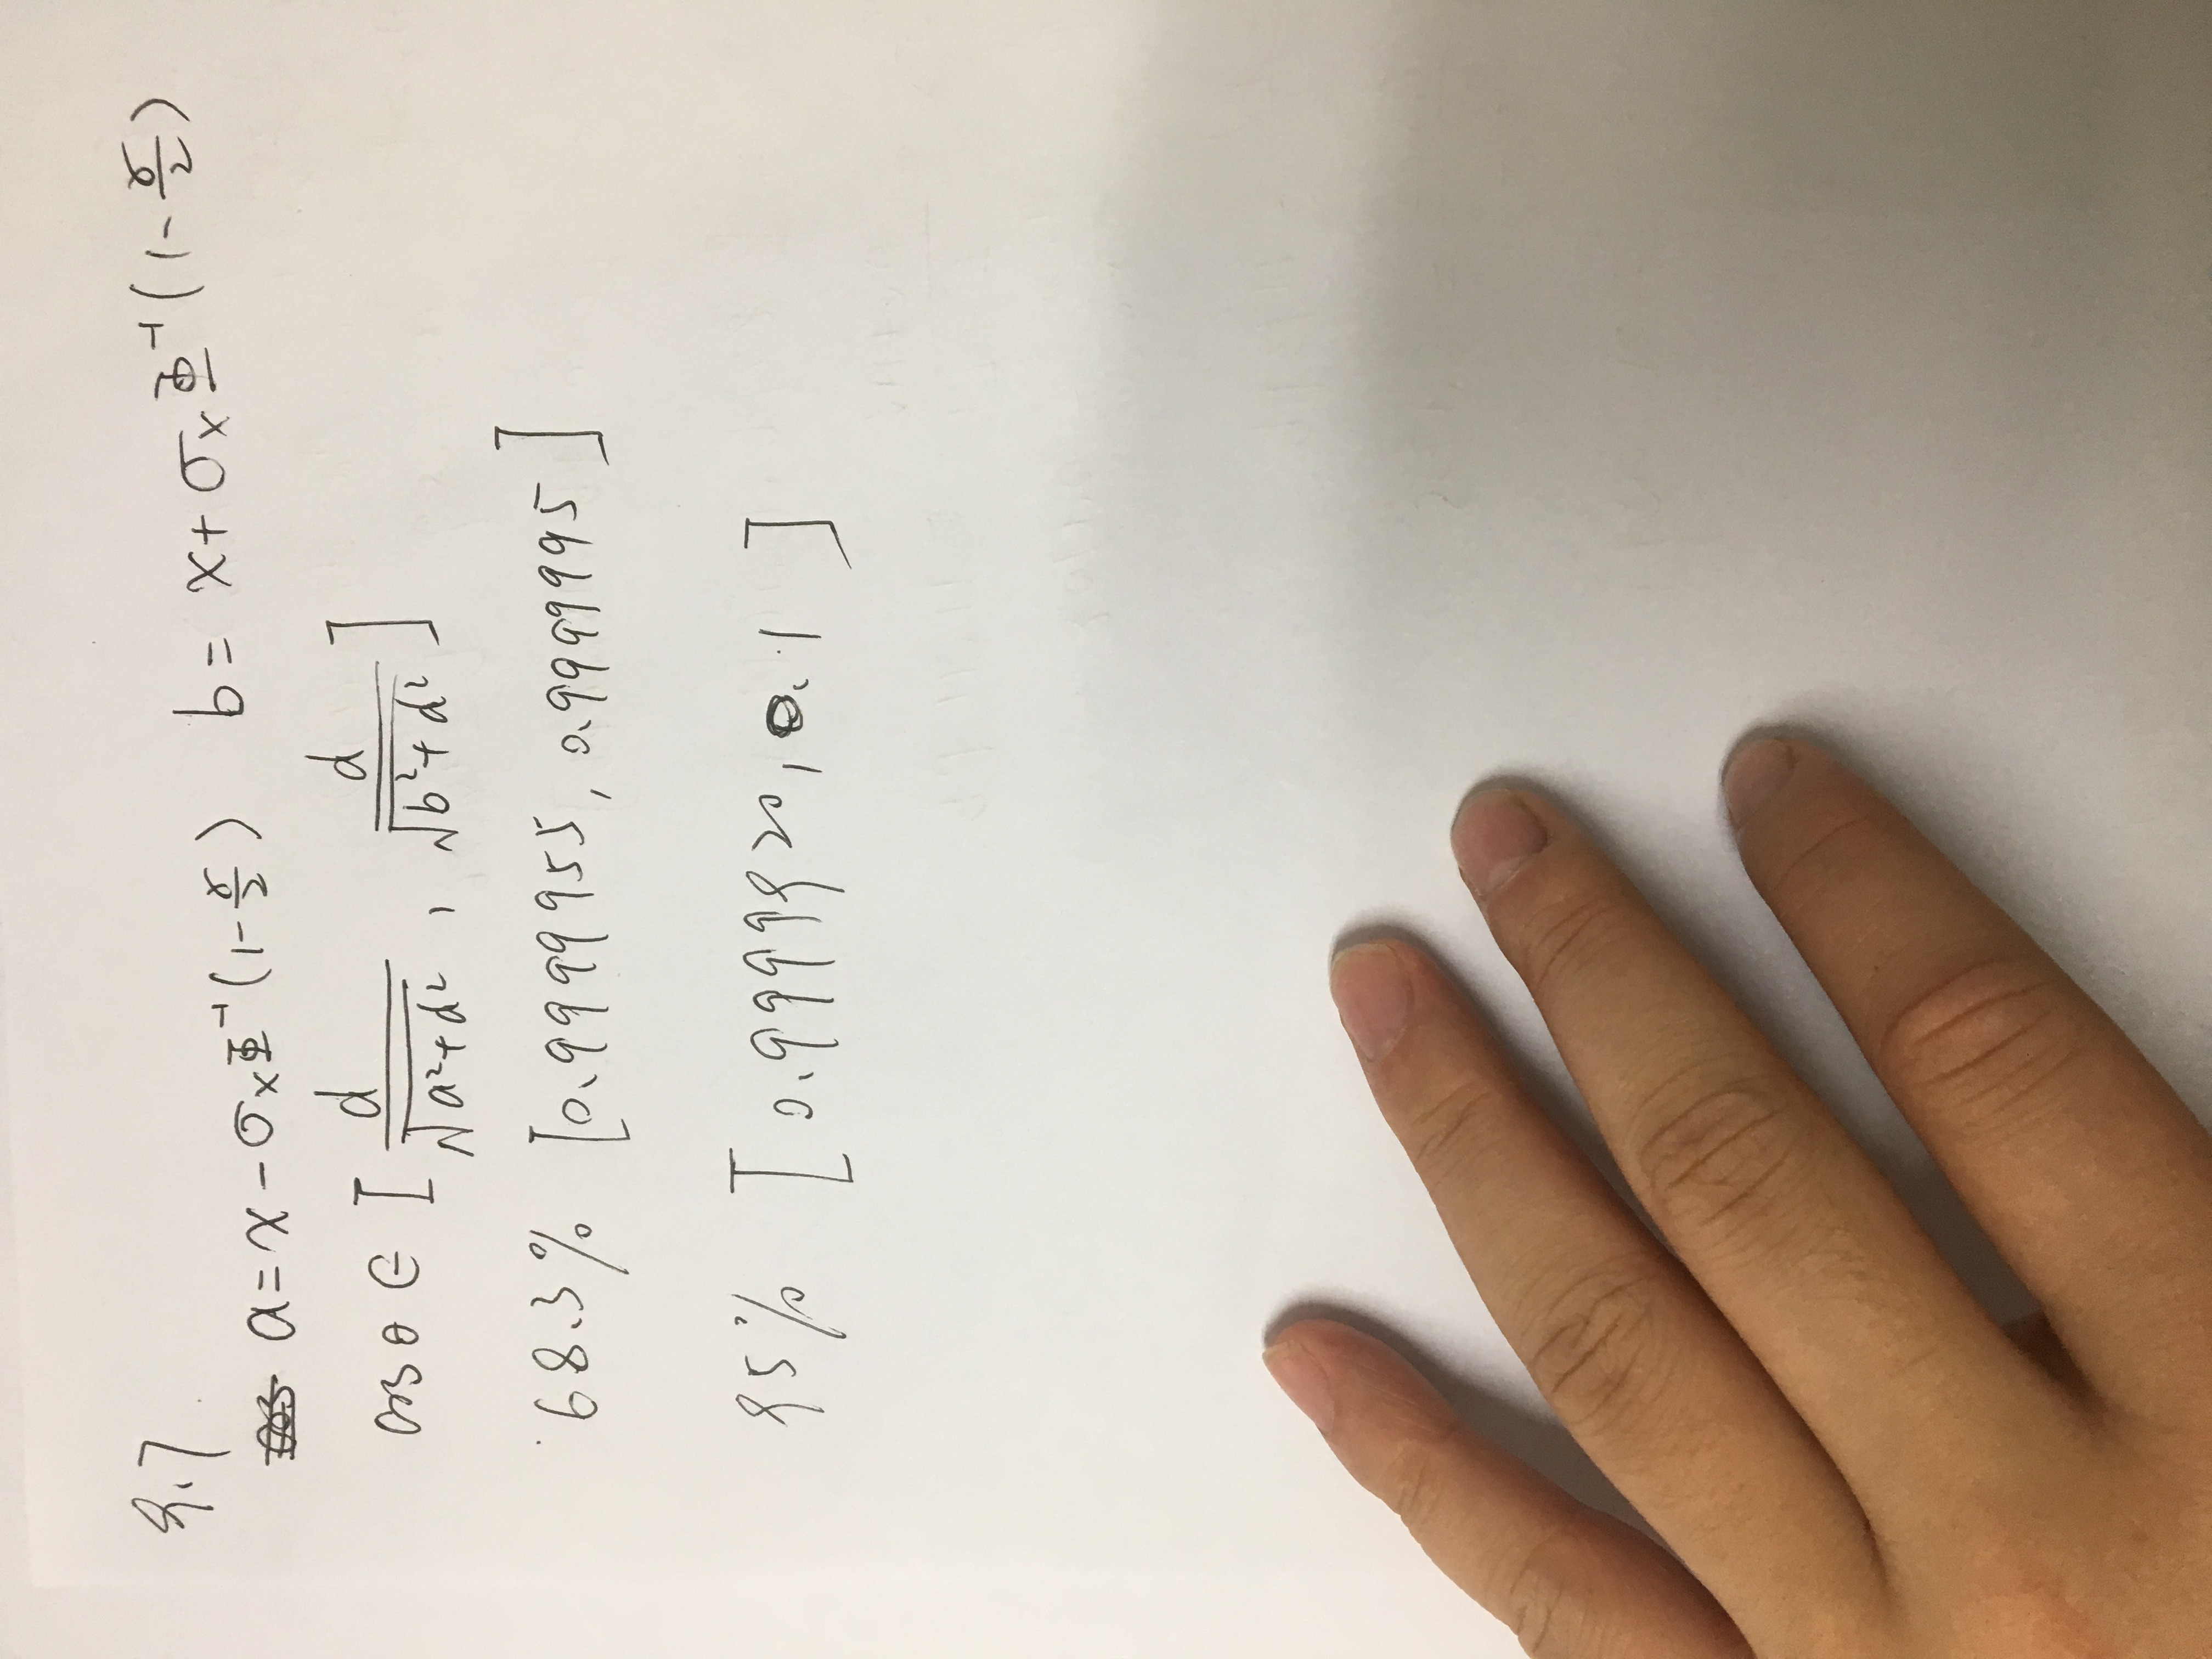 9.7
a = x - σx Φ⁻¹(1 - γ/2)   b = x + σx Φ⁻¹(1 - γ/2)
cos θ ∈ [ d/√(a²+d²) , d/√(b²+d²) ]
68.3% [0.9999955, 0.9999995]
95% [0.9999920, 0.1 ]